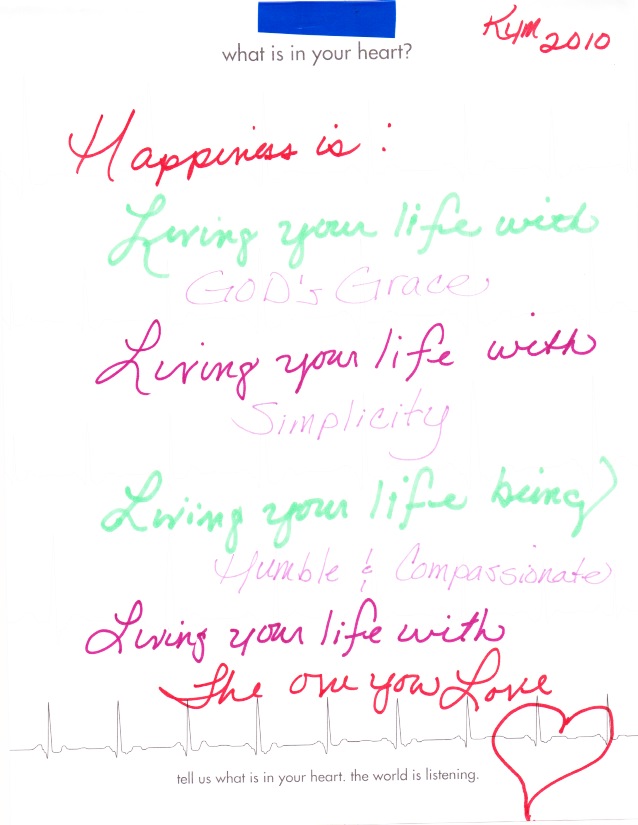 Kym 2010
what is in your heart?
Happiness is:
Living your life with
GOD's Grace
Living your life with
Simplicity
Living your life being
Humble & Compassionate
Living your life with
The one you Love
tell us what is in your heart. the world is listening.